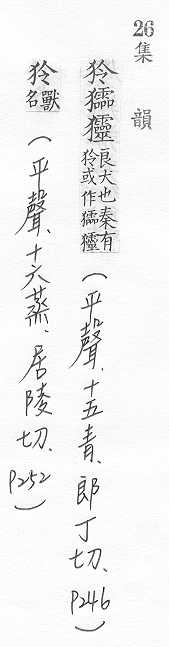 26集 韻
狑獳 良犬也秦有狑或作獳 (平聲、十五青、郎丁切、P246)
狑 獸名 (平聲、十六蒸、居陵切、P252)